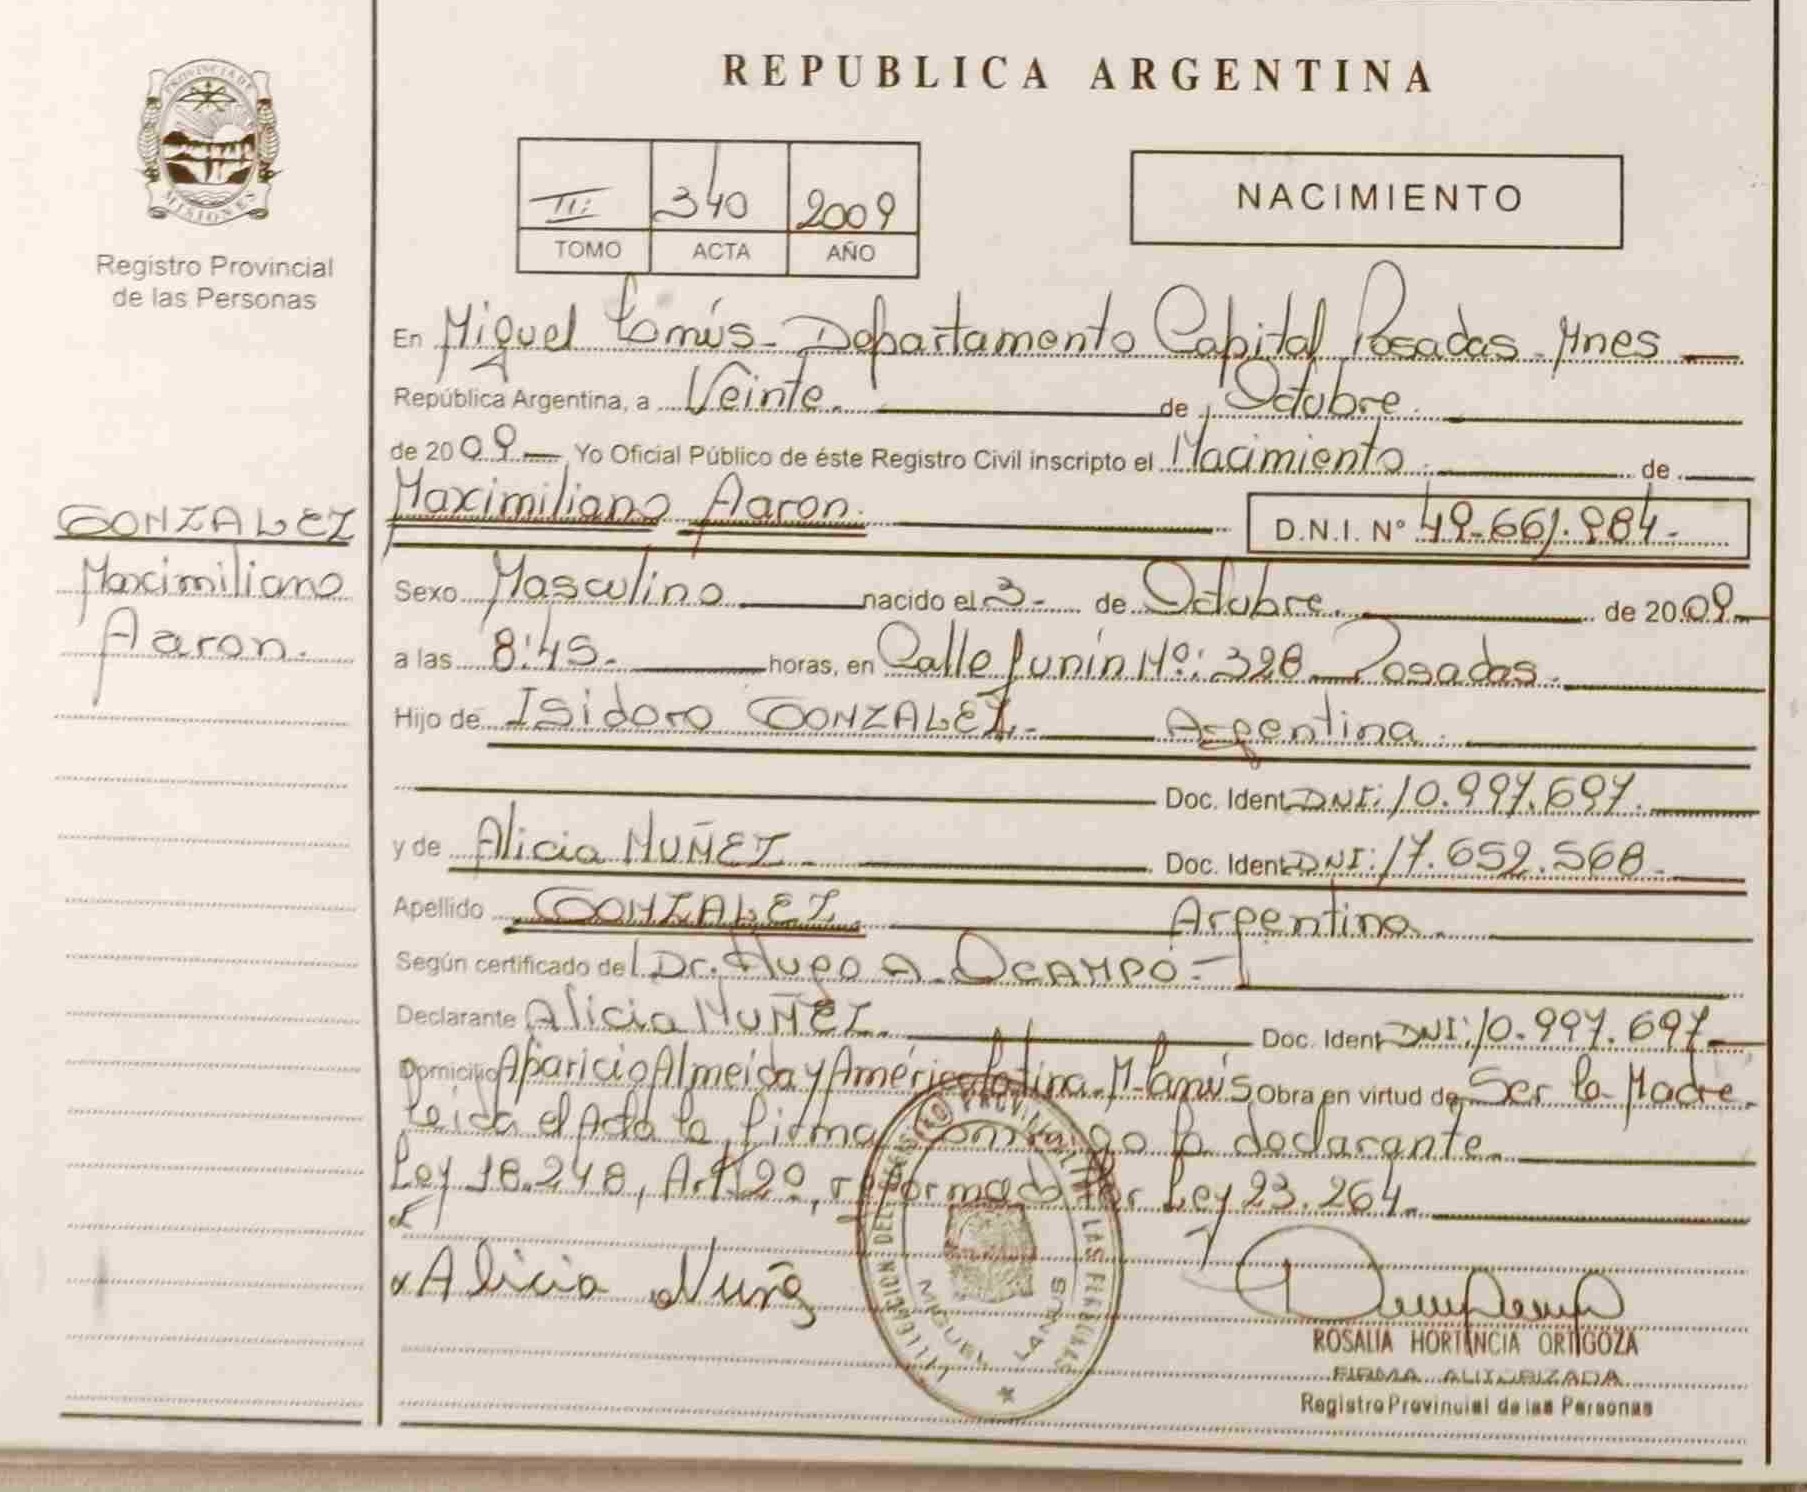 PROVINCIA DE
MISIONES
Registro Provincial
de las Personas
GONZALEZ
Maximiliano
Aaron.
REPUBLICA ARGENTINA
III: 340 2009
TOMO ACTA AÑO
NACIMIENTO
En Miguel Lanús - Departamento Capital Posadas - Mnes
República Argentina, a Veinte. de Octubre.
de 2009 Yo Oficial Público de éste Registro Civil inscripto el Nacimiento de
Maximiliano Aaron. D.N.I. N° 49.661.984.-
Sexo Masculino nacido el 3- de Octubre. de 2009-
a las 8:45. horas, en Calle Junín Nº: 328 Posadas.
Hijo de Isidoro GONZALEZ. Argentina.
Doc. Ident DNI: 10.997.697.
y de Alicia NUÑEZ - Doc. Ident DNI: 17.652.568.-
Apellido GONZALEZ Argentina.
Según certificado del Dr. Hugo A. OCAMPO -
Declarante Alicia NUÑEZ. Doc. Ident DNI: 10.997.697-
Domicilio Aparicio Almeida y América Latina - M. Lanús Obra en virtud de Ser la Madre.
Leida el Acta la firma conmigo la declarante.
Ley 18.248, Art. 2º, reformado por Ley 23.264.
Alicia Nuñez
MIGUEL LANUS
ROSALIA HORTENCIA ORTIGOZA
FIRMA AUTORIZADA
Registro Provincial de las Personas